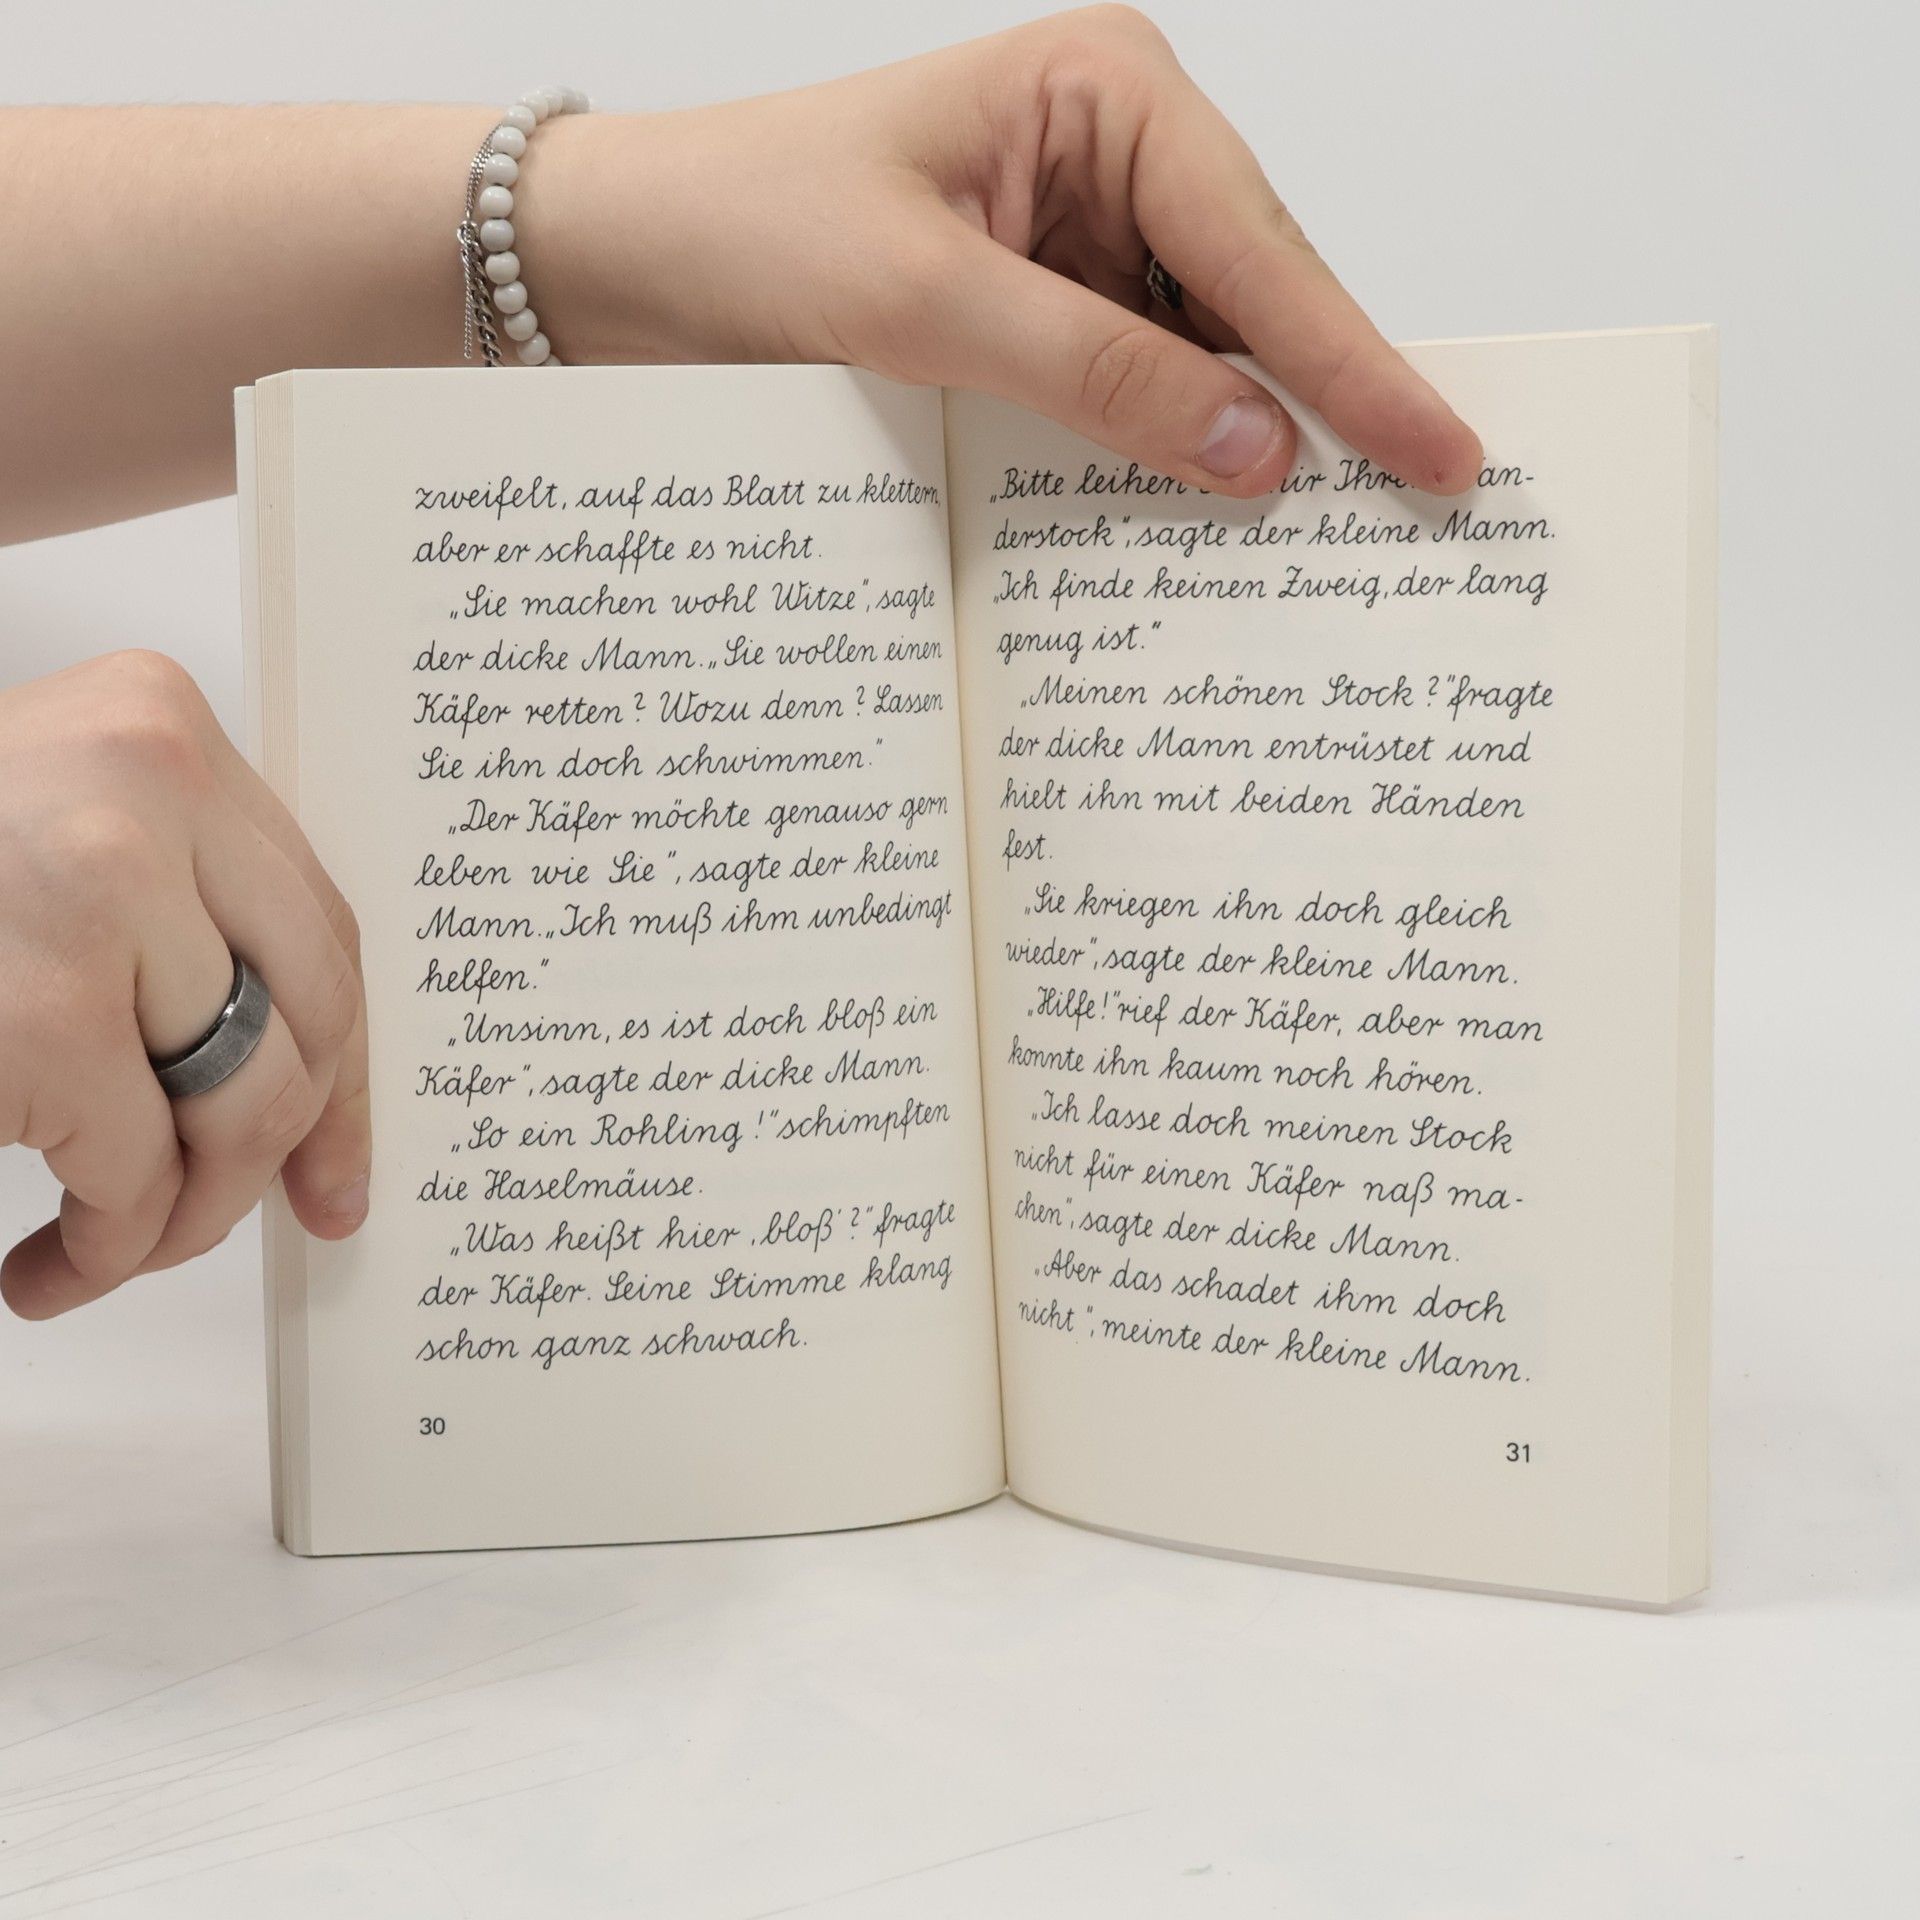 zweifelt, auf das Blatt zu klettern,
aber er schaffte es nicht.
„Sie machen wohl Witze", sagte
der dicke Mann. „Sie wollen einen
Käfer retten? Wozu denn? Lassen
Sie ihn doch schwimmen."
„Der Käfer möchte genauso gern
leben wie Sie", sagte der kleine
Mann. „Ich muß ihm unbedingt
helfen."
„Unsinn, es ist doch bloß ein
Käfer", sagte der dicke Mann.
„So ein Rohling!" schimpften
die Haselmäuse.
„Was heißt hier ‚bloß'?" fragte
der Käfer. Seine Stimme klang
schon ganz schwach.
30
„Bitte leihen
derstock", sagte der kleine Mann.
„Ich finde keinen Zweig, der lang
genug ist."
„Meinen schönen Stock?" fragte
der dicke Mann entrüstet und
hielt ihn mit beiden Händen
fest.
„Sie kriegen ihn doch gleich
wieder", sagte der kleine Mann.
„Hilfe!" rief der Käfer, aber man
konnte ihn kaum noch hören.
„Ich lasse doch meinen Stock
nicht für einen Käfer naß ma-
chen", sagte der dicke Mann.
„Aber das schadet ihm doch
nicht", meinte der kleine Mann.
31